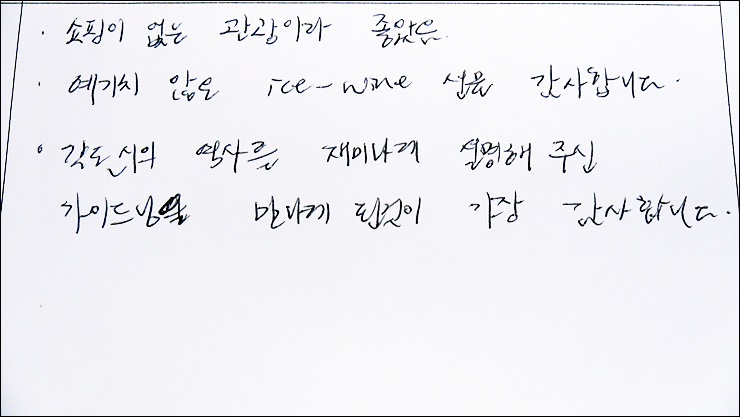 · 쇼핑이 없는 관광이라 좋았음.
· 예기치 않은 ice-wine 선물 감사합니다.
· 각도시의 역사를 재미나게 설명해 주신
가이드님을 만나게 된것이 가장 감사합니다.